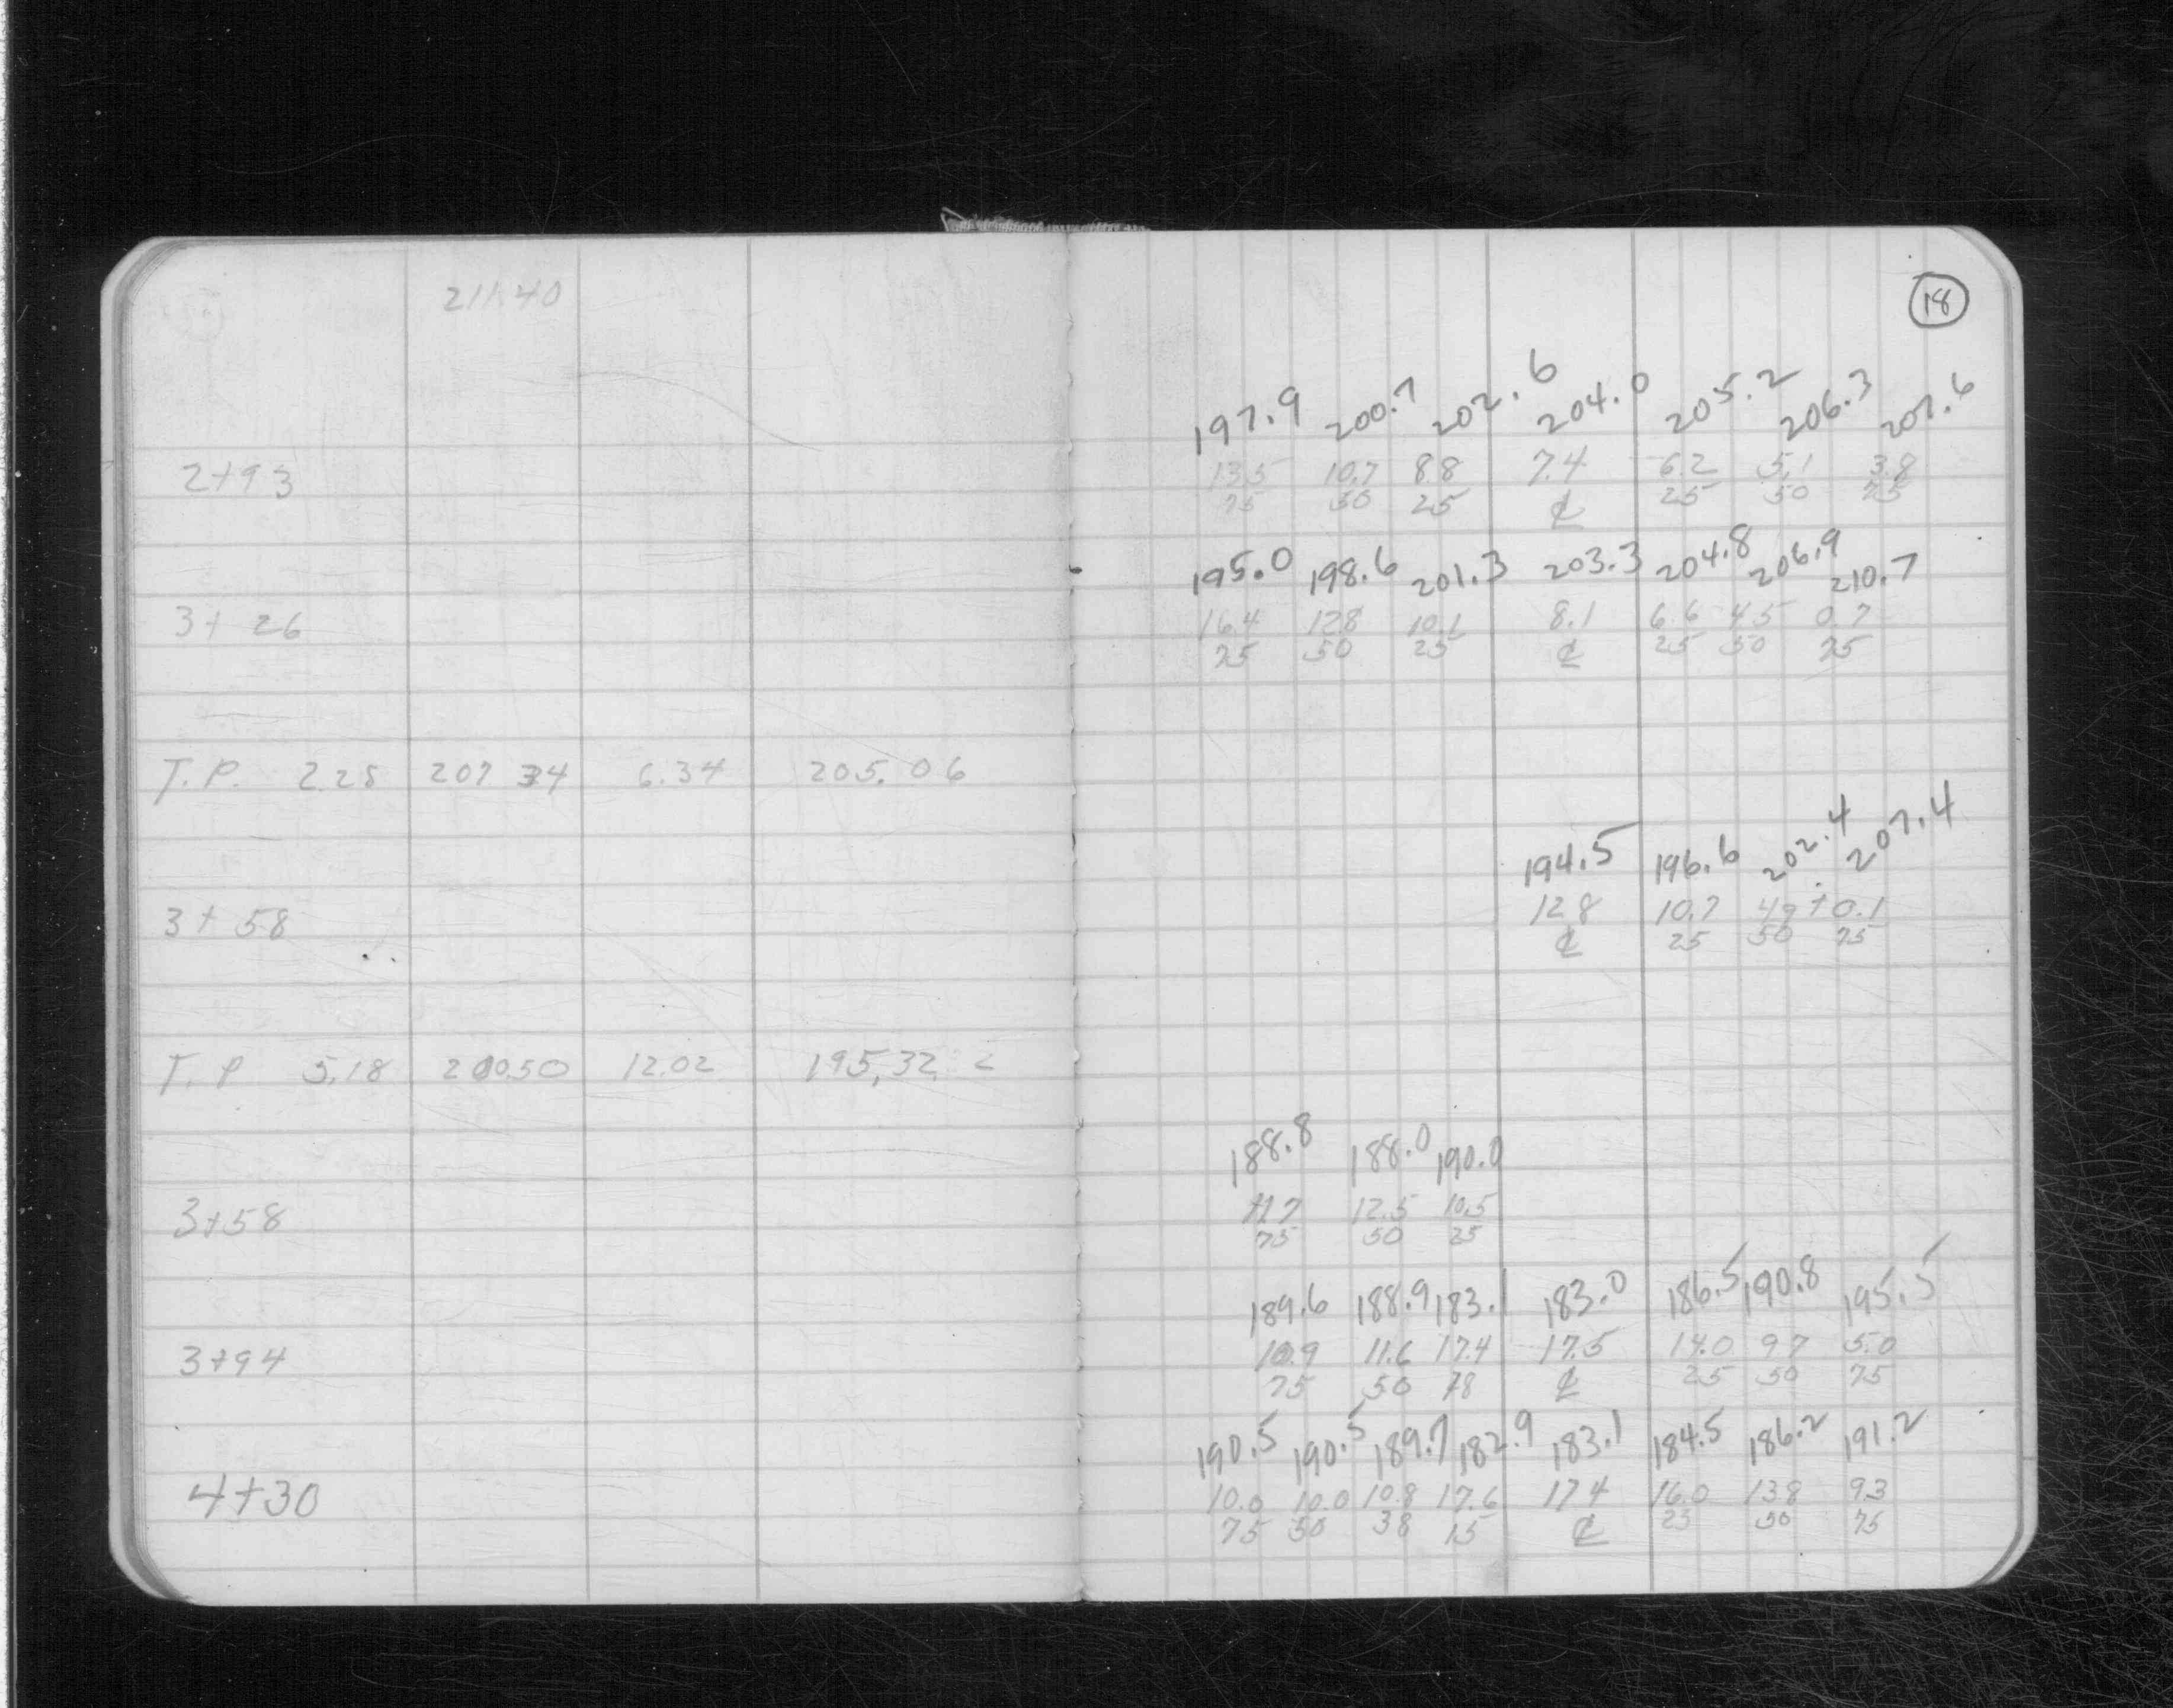 211.40
18
197.9 200.7 202.6 204.0 205.2 206.3 207.6
2+93 13.5 10.7 8.8 7.4 6.2 5.1 3.8
75 50 25 ℄ 25 50 75
195.0 198.6 201.3 203.3 204.8 206.9 210.7
3+26 16.4 12.8 10.1 8.1 6.6 4.5 0.7
75 50 25 ℄ 25 50 75
T.P. 2.28 207 34 6.34 205.06
194.5 196.6 202.4 207.4
3+58 12.8 10.7 4.9 +0.1
℄ 25 50 75
T.P 5.18 200.50 12.02 195.32
188.8 188.0 190.0
3+58 11.7 12.5 10.5
75 50 25
189.6 188.9 183.1 183.0 186.5 190.8 195.5
3+94 10.9 11.6 17.4 17.5 14.0 9.7 5.0
75 50 18 ℄ 25 50 75
190.5 190.5 189.7 182.9 183.1 184.5 186.2 191.2
4+30 10.0 10.0 10.8 17.6 17.4 16.0 13.8 9.3
75 50 38 15 ℄ 25 50 75